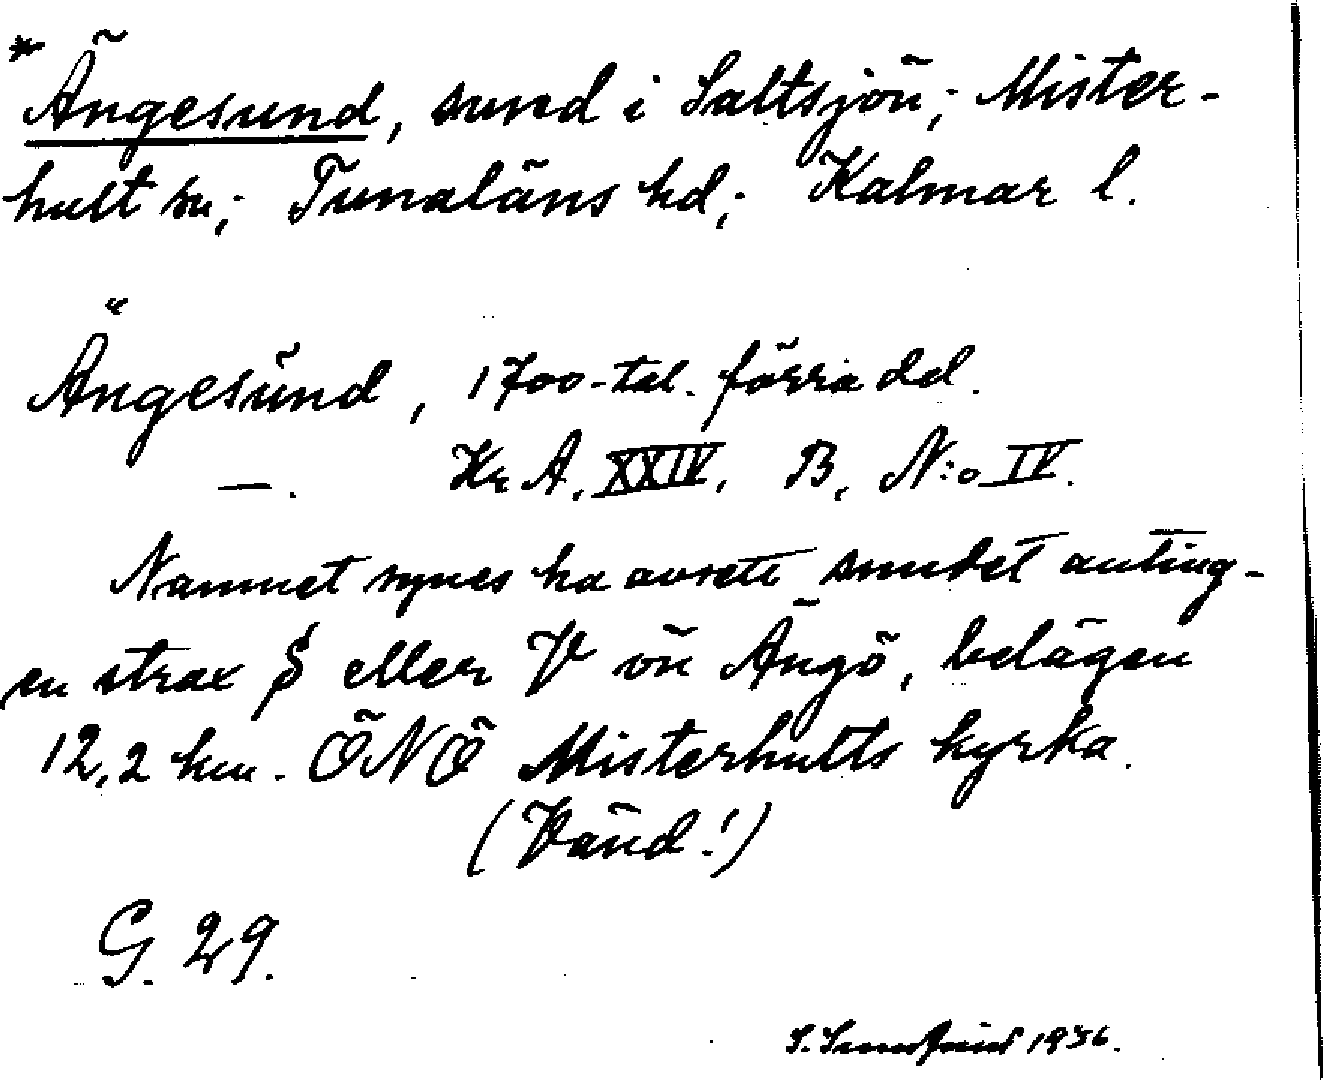 * Ängesund, sund i Saltsjön; Mister-
hult sn; Tunaläns hd; Kalmar l.
Ängesŭnd, 1700-tal. förra del.
—. Kr A. XXIV, B, N:o IV.
Namnet synes ha avsett sundet anting-
en strax S eller V om Ängö, belägen
12,2 km. ÖNÖ Misterhults kyrka.
(Vänd!)
G. 29.
1936.